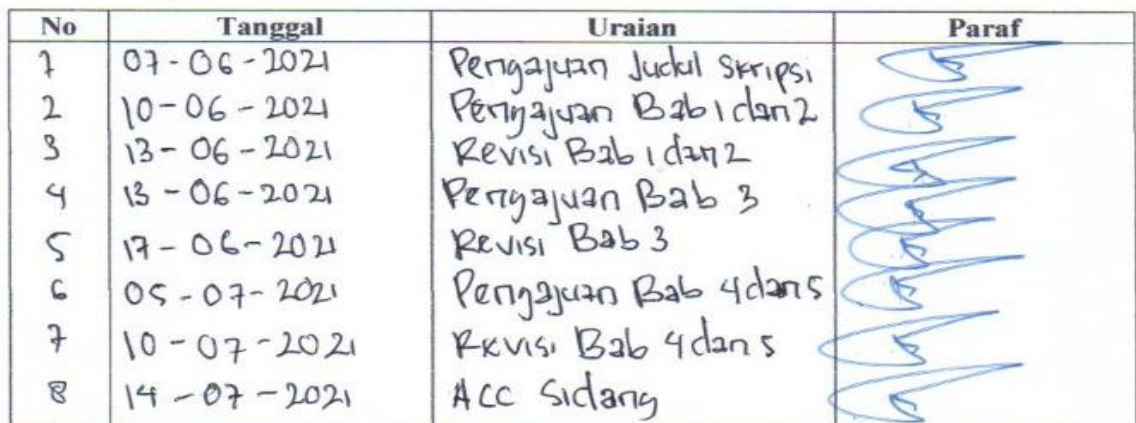 No Tanggal Uraian Paraf
1 07-06-2021 Pengajuan Judul Skripsi
2 10-06-2021 Pengajuan Bab 1 dan 2
3 13-06-2021 Revisi Bab 1 dan 2
4 13-06-2021 Pengajuan Bab 3
5 17-06-2021 Revisi Bab 3
6 05-07-2021 Pengajuan Bab 4 dan 5
7 10-07-2021 Revisi Bab 4 dan 5
8 14-07-2021 ACC Sidang